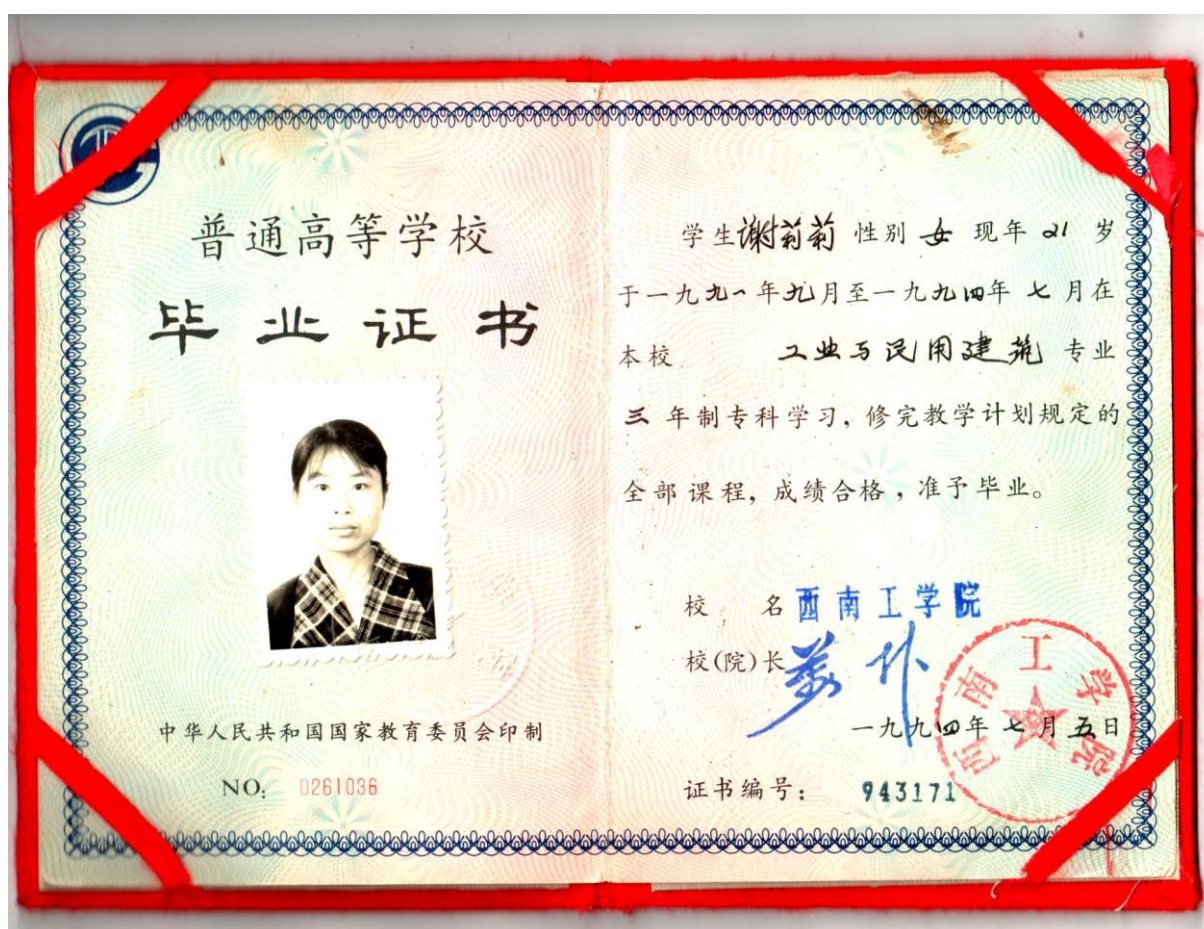 普通高等学校
毕业证书
中华人民共和国国家教育委员会印制
NO: 0261036
学生谢莉莉 性别 女 现年 21 岁
于一九九一年九月至一九九四年 七 月在
本校 工业与民用建筑 专业
三 年制专科学习, 修完教学计划规定的
全部课程, 成绩合格, 准予毕业。
校 名 西南工学院
校(院)长
一九九四年 七 月 五 日
西南工学院
证书编号: 943171